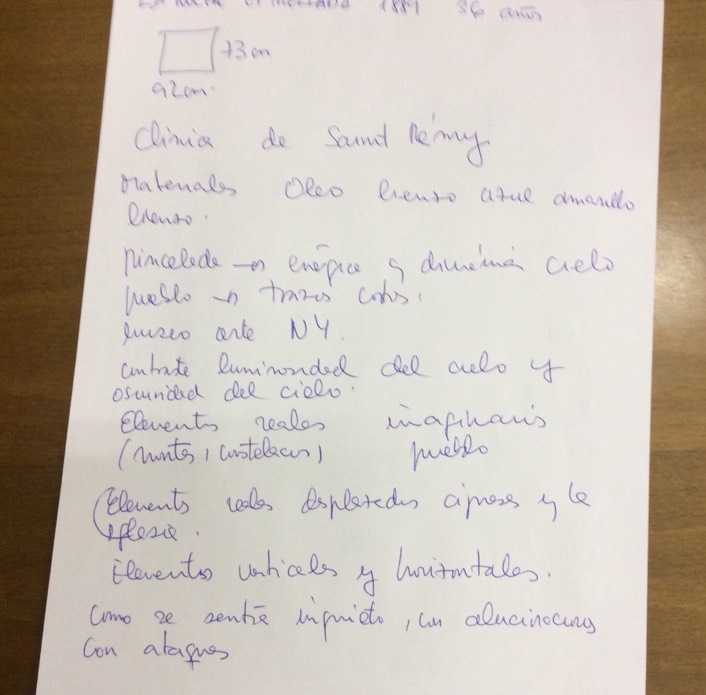 La noche estrellada 1889 36 años
73 cm
92 cm.
Clínica de Saint Rémy
Materiales Oleo lienzo azul amarillo
lienzo.
Pincelada → enérgica y dinámica cielo
pueblo → trazos cortos.
Museo arte NY.
contraste luminosidad del cielo y
oscuridad del cielo.
Elementos reales imaginarios
(montes, constelacion) pueblo
(Elementos reales desplazados cipreses y la
iglesia.
Elementos verticales y horizontales.
Como se sentía inquieto, con alucinaciones
con ataques